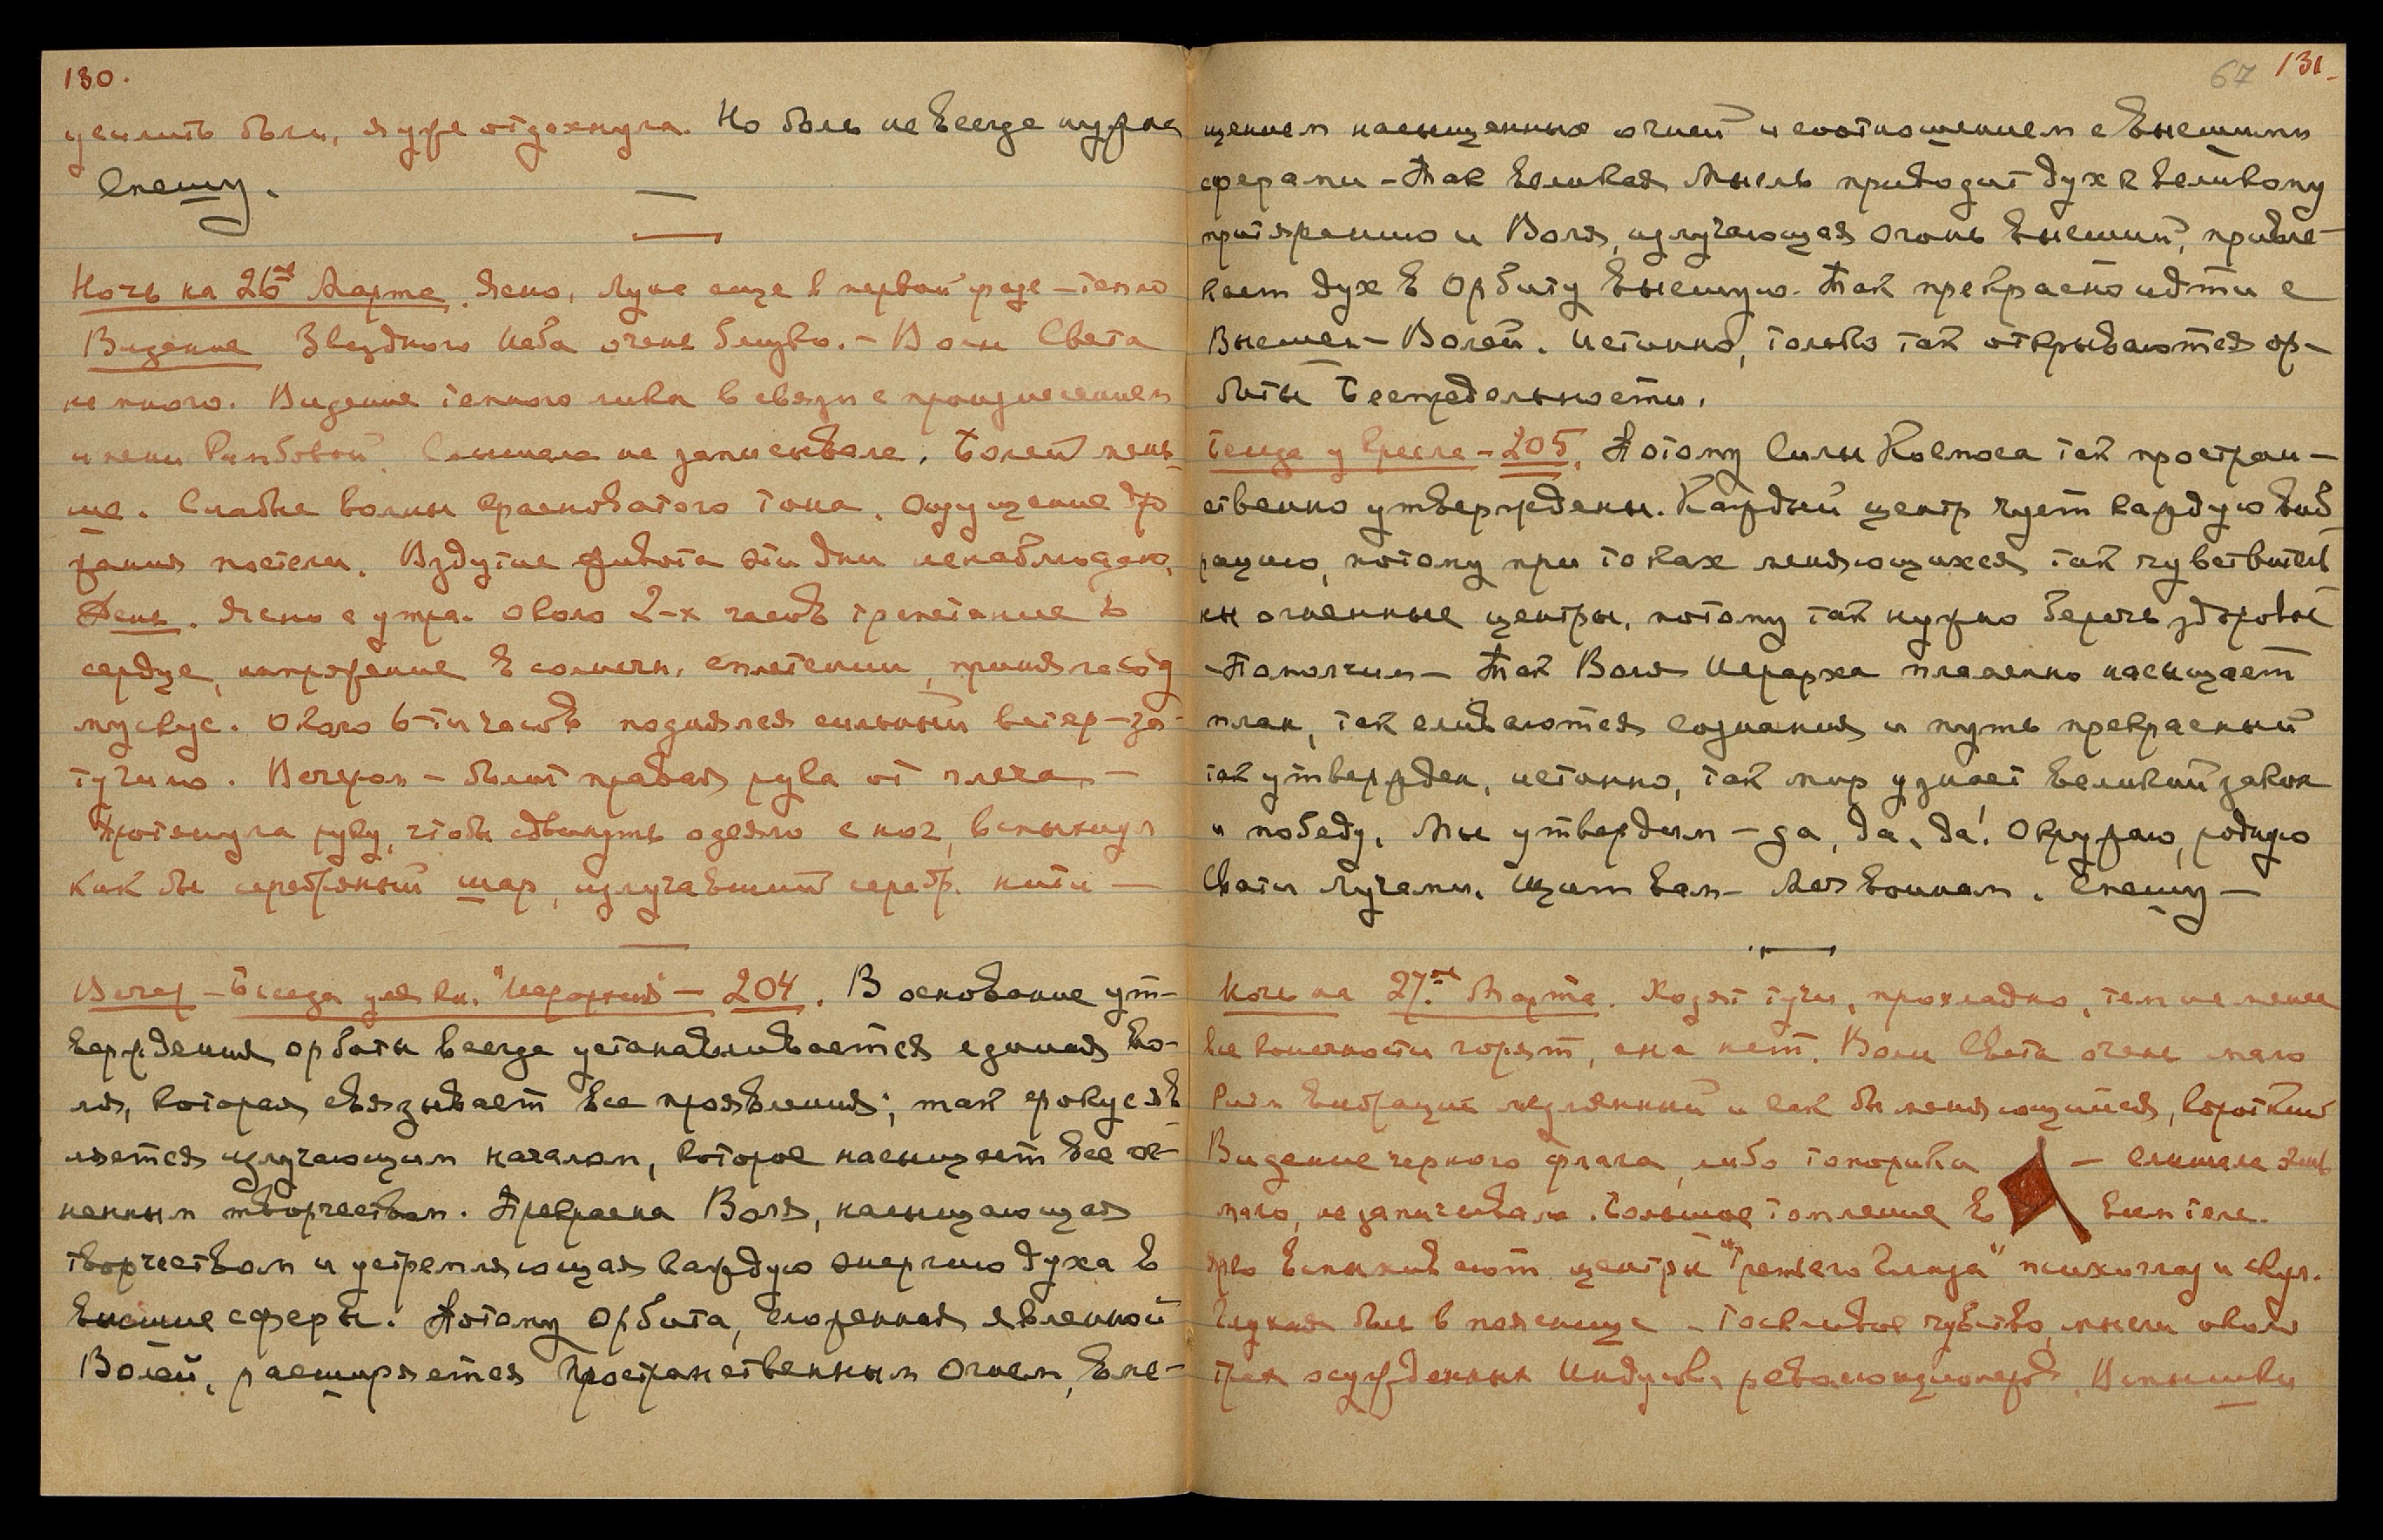 130.
усилить боли, я уже отдохнула. Но боль не всегда нужна
Спешу.
Ночь на 26ое Марта. Ясно, луна еще в первой фазе – тепло
Видение Звездного неба очень близко. – Воли Света
не много. Видение темного лика в связи с произнесением
имени Слышала не записывала. Болей мень-
ше. Слабые волны красноватого тона. Ощущение дро
жания постели. Вздутие живота эти дни не наблюдаю,
День. Ясно с утра. Около 2-х часов трепетание в
сердце, напряжение в солнечн. сплетении, приняла соду
мускус. Около 6-ти часов поднялся сильный ветер – за-
тучило. Вечером – болит правая рука от плеча –
Протянула руку, чтобы сдвинуть одеяло с ног, вспыхнул
как бы серебряный шар, излучавший серебр. нити –
Вечер – Беседа для кн. "Иерархия" – 204. В основание ут-
верждения орбиты всегда устанавливается единая Во-
ля, которая связывает все проявления; так фокус яв
ляется излучающим началом, которое насыщает все ог-
ненным творчеством. Прекрасна Воля, насыщающая
творчеством и устремляющая каждую энергию духа в
высшие сферы. Потому Орбита, сложенная явленной
Волей, расширяется Пространственным Огнем, вме-
67 131.
щением насыщенных огней и соотношением с высшими
сферами – Так великая Мысль приводит дух к великому
притяжению и Воля, излучающая огонь высший, привле-
кает дух в Орбиту высшую. Так прекрасно идти с
Высшей – Волей. Истинно, только так открываются ор-
биты Беспредельности.
Беседа у кресла – 205. Потому Силы Космоса так простран-
ственно утверждены. Каждый центр чует каждую виб
рацию, потому при токах меняющихся так чувствитель
ны огненные центры, потому так нужно беречь здоровье
– Помолчим – Так Воля Иерарха пламенно насыщает
план, так сливаются сознания и путь прекрасный
так утвержден, истинно, так мир узнает великий закон
и победу. Мы утвердим – да, да, да! Окружаю, родную
Свати лучами. Щит вам – Мой воинам. Спешу –
Ночь на 27ое Марта. Ходят тучи, прохладно, тем не менее
все конечности горят, сна нет. Воли Света очень мало
Ритм вибраций медленный и как бы меняющийся, короткий
Видение черного флага, либо топорика – слышала очень
мало, не записывала. Большое томление в всем теле.
Ярко вспыхивают центры "Третьего Глаза"
Глухие боли в пояснице – тоскливое чувство, мысли около
трех осужденных Индусов, революционеров. Вспышки